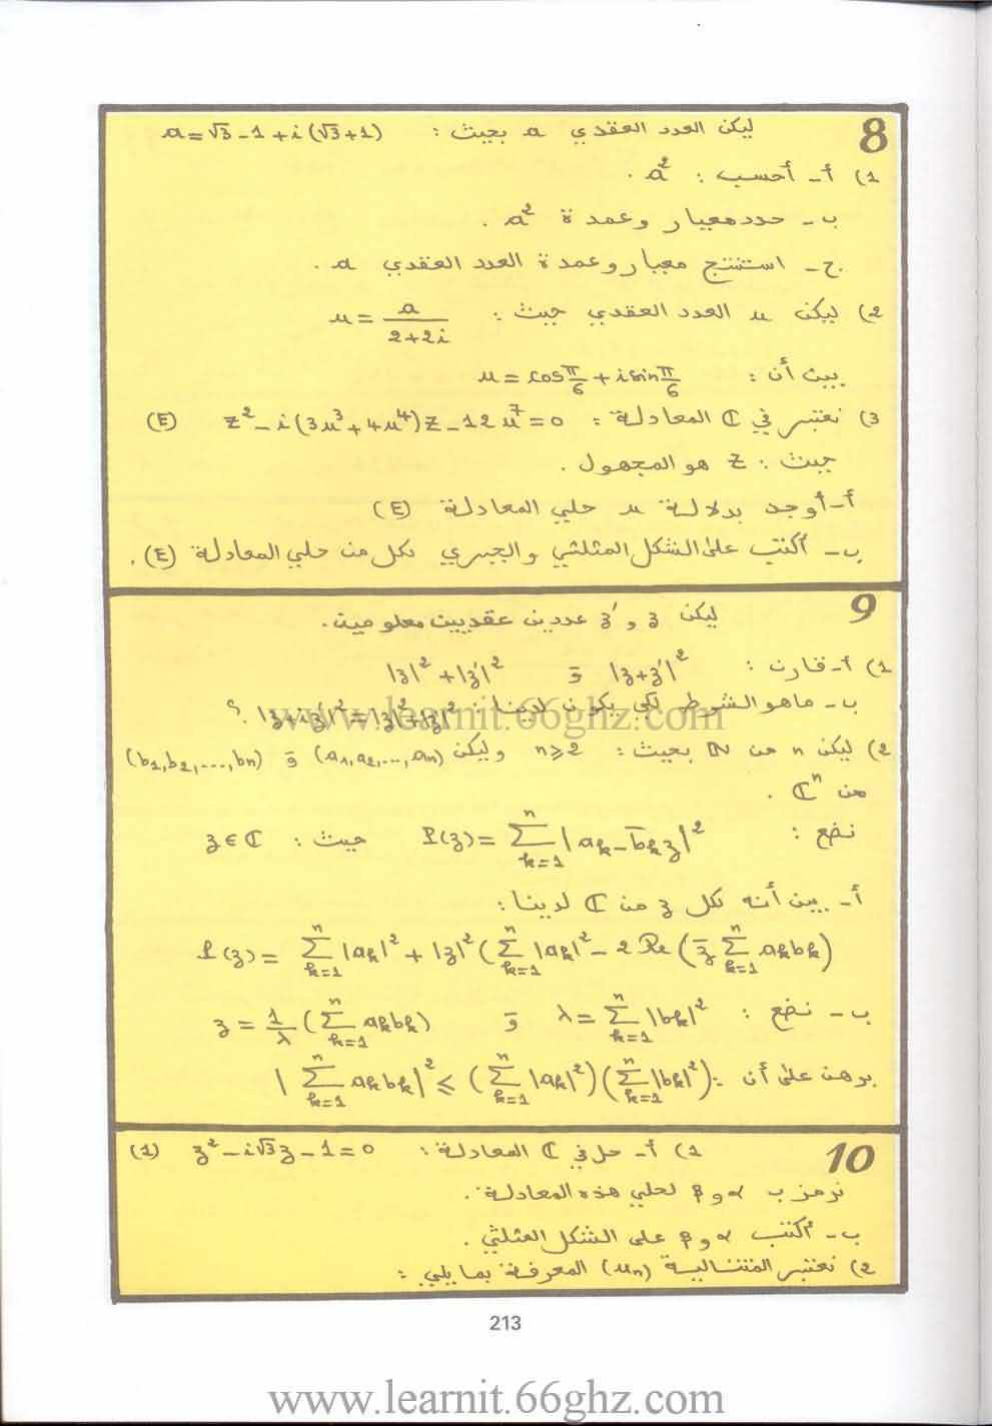 8 ليكن العدد العقدي a بحيث : a = √3 - 1 + i (√3 + 1)
1) أ - أحسب : a² .
ب - حدد معيار وعمدة a² .
ج - استنتج معيار وعمدة العدد العقدي a .
2) ليكن u العدد العقدي حيث : u = a / (2+2i)
بين أن : u = cos π/6 + i sin π/6
3) نعتبر في ℂ المعادلة : z² - i (3u³ + 4u⁴) z - 12 u⁷ = 0 (E)
حيث : z هو المجهول .
أ - أوجد بدلالة u حلي المعادلة (E)
ب - أكتب على الشكل المثلثي والجبري لكل من حلي المعادلة (E) .
9
ليكن z و z' عددين عقديين معلومين .
1) أ - قارن : |z+z'|² و |z|² + |z'|²
ب - ماهو الشرط لكي يكون لدينا : |z+iz'|² = |z|² + |z'|² ؟
2) ليكن n من ℕ بحيث : n ⩾ 2 وليكن (a₁, a₂, ..., aₙ) و (b₁, b₂, ..., bₙ)
من ℂⁿ .
نضع : P(z) = ∑ₖ₌₁ⁿ |aₖ - b̄ₖ z|² حيث : z ∈ ℂ
أ - بين أنه لكل z من ℂ لدينا :
P(z) = ∑ₖ₌₁ⁿ |aₖ|² + |z|² (∑ₖ₌₁ⁿ |aₖ|² - 2 Re (z̄ ∑ₖ₌₁ⁿ aₖbₖ)
ب - نضع : λ = ∑ₖ₌₁ⁿ |bₖ|² و z = 1/λ (∑ₖ₌₁ⁿ aₖbₖ)
برهن على أن : |∑ₖ₌₁ⁿ aₖbₖ|² ⩽ (∑ₖ₌₁ⁿ |aₖ|²)(∑ₖ₌₁ⁿ |bₖ|²)
10 1) أ - حل في ℂ المعادلة : z² - i√3 z - 1 = 0 (1)
نرمز ب α و β لحلي هذه المعادلة .
ب - أكتب α و β على الشكل المثلثي .
2) نعتبر المتتالية (uₙ) المعرفة بما يلي :
213
www.learnit.66ghz.com
www.learnit.66ghz.com